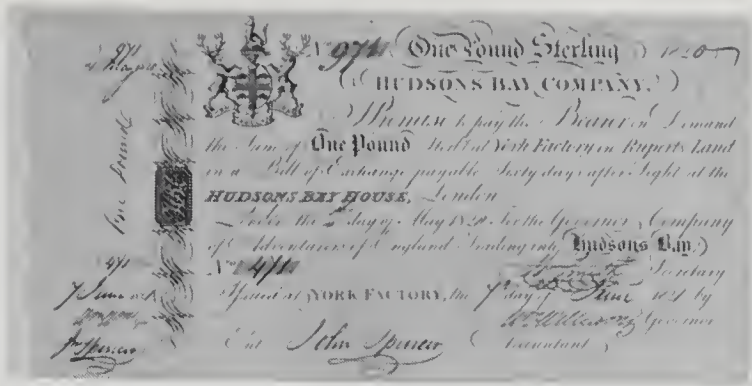 No. 971 One Pound Sterling 1820
HUDSONS BAY COMPANY.
I Promise to pay the Bearer on Demand
the Sum of One Pound Sterl. at York Factory in Ruperts Land
in a Bill of Exchange payable Sixty days after Sight at the
HUDSONS BAY HOUSE, London
London the 2 day of May 1820. For the Governor & Company
of Adventurers of England Trading into Hudsons Bay.
No. 471 Secretary
Issued at YORK FACTORY, the 7 day of June 1821 by
Wm Williams Governor
Ent. John Spencer Accountant
971
2 May
One Pound
471
7 June 1821
Jn Spencer